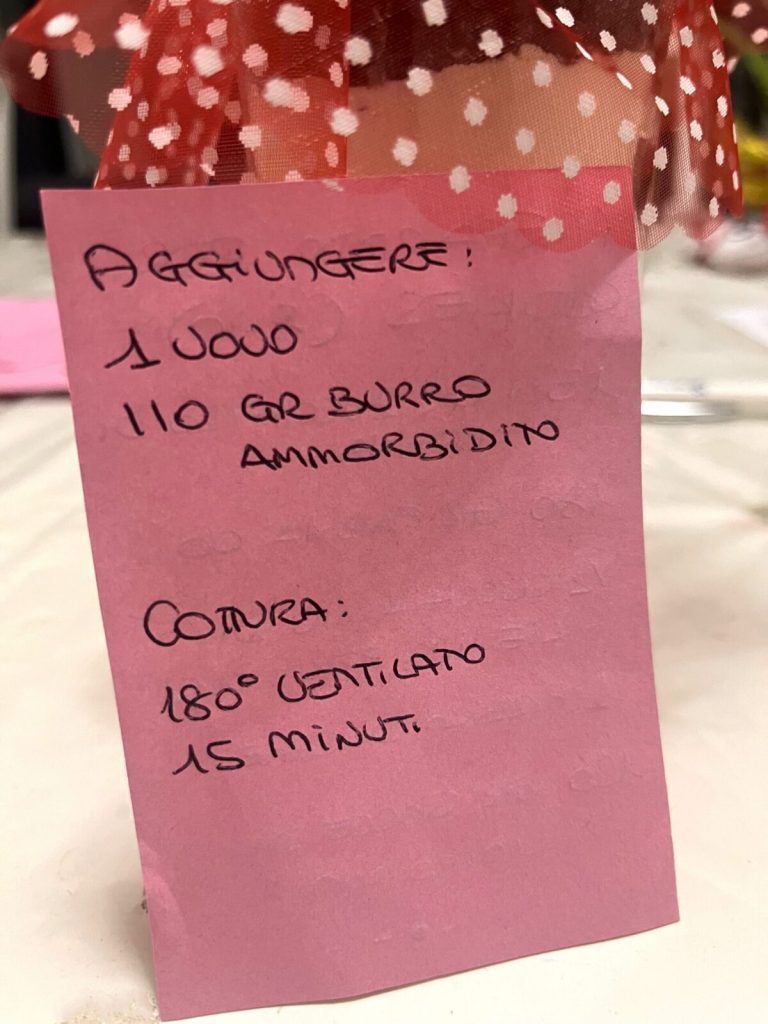 AGGIUNGERE:
1 UOVO
110 GR BURRO
AMMORBIDITO
COTTURA:
180° VENTILATO
15 MINUTI